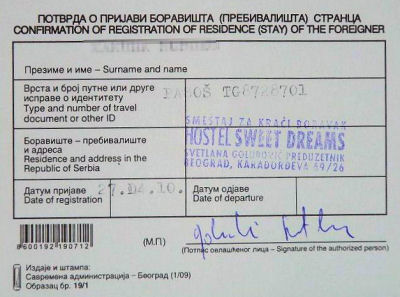 ПОТВРДА О ПРИЈАВИ БОРАВИШТА (ПРЕБИВАЛИШТА) СТРАНЦА
CONFIRMATION OF REGISTRATION OF RESIDENCE (STAY) OF THE FOREIGNER
Презиме и име – Surname and name
Врста и број путне или друге
исправе о идентитету
Type and number of travel
document or other ID
PASOŠ TG8728701
Боравиште – пребивалиште
и адреса
Residence and address in the
Republic of Serbia
SMEŠTAJ ZA KRAĆI BORAVAK
HOSTEL SWEET DREAMS
SVETLANA GOLUBOVIĆ PREDUZETNIK
BEOGRAD, KARAĐORĐEVA 69/26
Датум пријаве
Date of registration
27.04.10.
Датум одјаве
Date of departure
8600192190712
(М.П.)
(Потпис овлашћеног лица – Signature of the authorized person)
Издаје и штампа:
Савремена администрација – Београд (1/09)
Образац бр. 19/1